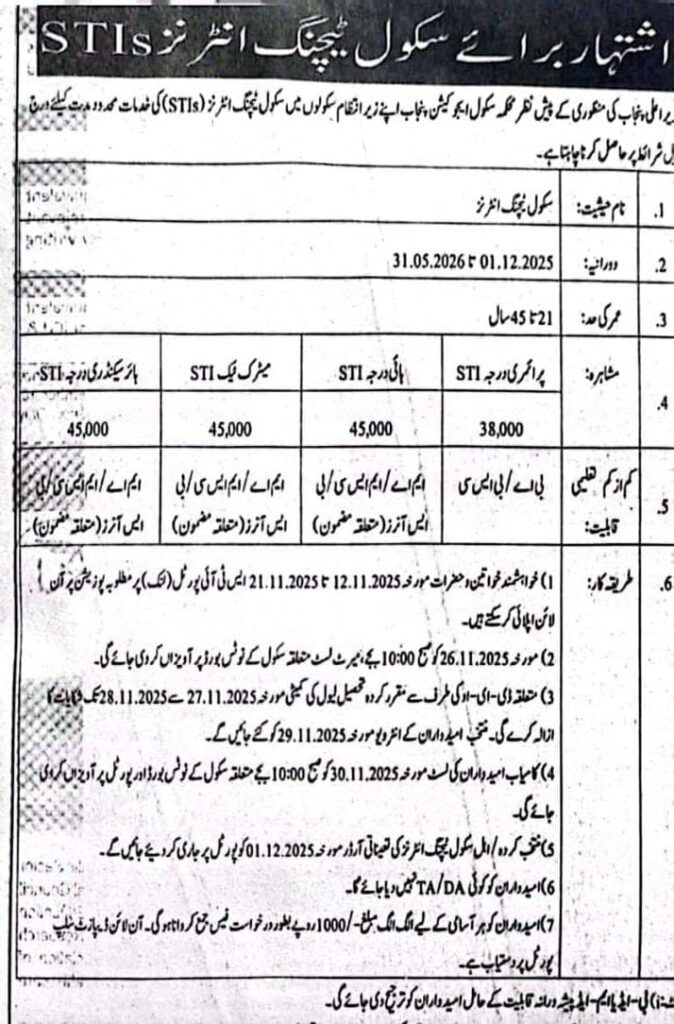 اشتہار برائے سکول ٹیچنگ انٹرنز STIs
یر اعلیٰ پنجاب کی منظوری کے پیش نظر محکمہ سکول ایجوکیشن پنجاب اپنے زیر انتظام سکولوں میں سکول ٹیچنگ انٹرنز (STIs) کی خدمات محدود مدت کیلئے درج
یل شرائط پر حاصل کرنا چاہتا ہے۔
1. نام حیثیت: سکول ٹیچنگ انٹرنز
2. دورانیہ: 01.12.2025 تا 31.05.2026
3. عمر کی حد: 21 تا 45 سال
4. مشاہرہ: پرائمری درجہ STI ہائی درجہ STI میٹرک ٹیک STI ہائر سیکنڈری درجہ STI
38,000 45,000 45,000 45,000
5. کم از کم تعلیمی بی اے/بی ایس سی ایم اے/ایم ایس سی/بی ایم اے/ایم ایس سی/بی ایم اے/ایم ایس سی/بی
قابلیت: ایس آنرز (متعلقہ مضمون) ایس آنرز (متعلقہ مضمون) ایس آنرز (متعلقہ مضمون)
6. طریقہ کار: 1) خواہشمند خواتین و حضرات مورخہ 12.11.2025 تا 21.11.2025 ایس ٹی آئی پورٹل (لنک) پر مطلوبہ پوزیشن پر آن
لائن اپلائی کر سکتے ہیں۔
2) مورخہ 26.11.2025 کو صبح 10:00 بجے، میرٹ لسٹ متعلقہ سکول کے نوٹس بورڈ پر آویزاں کر دی جائے گی۔
3) متعلقہ ڈی-ای-او کی طرف سے مقرر کردہ تحصیل لیول کی کمیٹی مورخہ 27.11.2025 سے 28.11.2025 تک شکایات کا
ازالہ کرے گی۔ منتخب امیدواران کے انٹرویو مورخہ 29.11.2025 کو کئے جائیں گے۔
4) کامیاب امیدواران کی لسٹ مورخہ 30.11.2025 کو صبح 10:00 بجے متعلقہ سکول کے نوٹس بورڈ اور پورٹل پر آویزاں کر دی
جائے گی۔
5) منتخب کردہ/اہل سکول ٹیچنگ انٹرنز کی تعیناتی آرڈر مورخہ 01.12.2025 کو پورٹل پر جاری کر دیئے جائیں گے۔
6) امیدواران کو کوئی TA/DA نہیں دیا جائے گا۔
7) امیدواران کو ہر آسامی کے لیے الگ الگ مبلغ -/1000 روپے بطور درخواست فیس جمع کروانا ہوگی۔ آن لائن ڈیپازٹ سلپ
پورٹل پر دستیاب ہے۔
i) بی-ایڈ یا ایم-ایڈ پیشہ ورانہ قابلیت کے حامل امیدواران کو ترجیح دی جائے گی۔